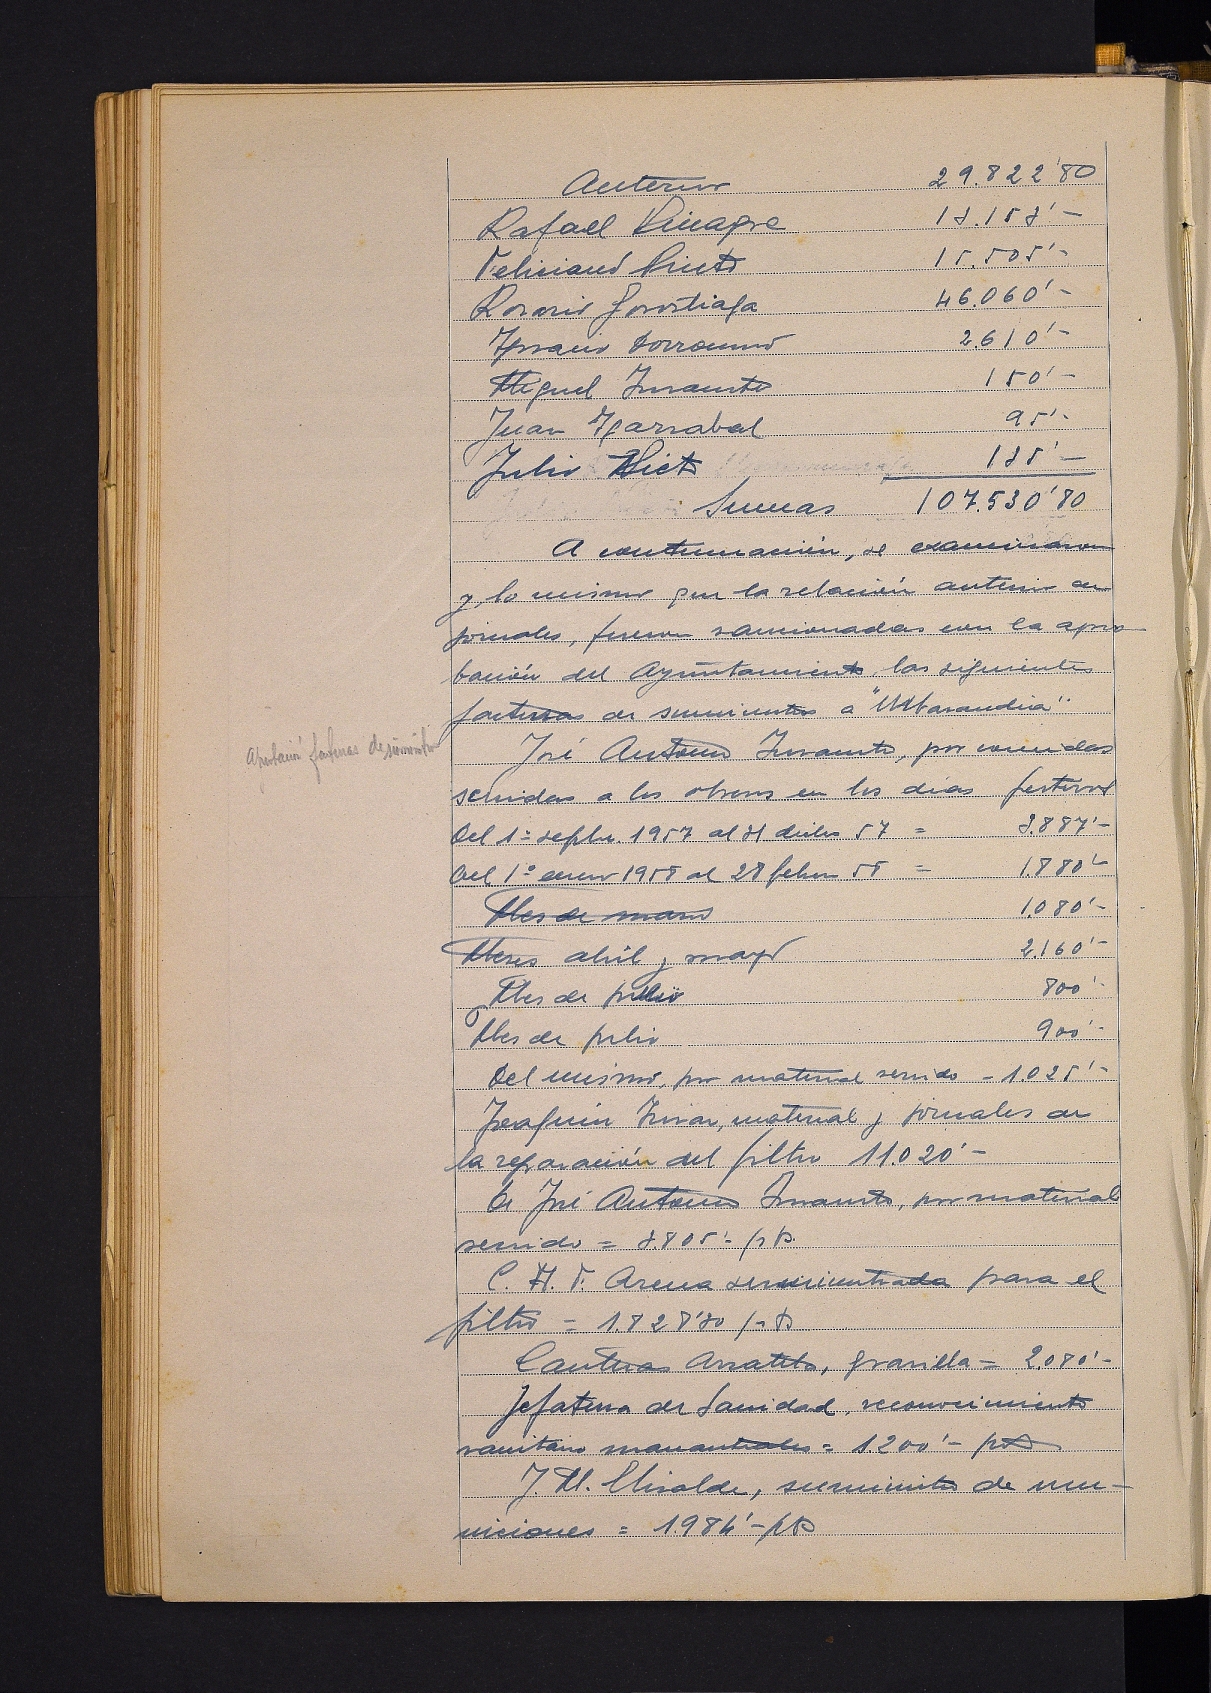 Anterior 29.822'80
Rafael Vinagre 13.153'-
Feliciano Prieto 15.505'-
Rosario Gorostiaga 46.060'-
Ignacio 2.610'-
Miguel Insausti 150'-
Juan Ygarzabal 95'-
Julio 135'-
Sumas 107.530'80
A continuación, se examinaron
y lo mismo que la relación anterior de
jornales, fueron sancionadas con la apro-
bación del Ayuntamiento, las siguientes
facturas de suministro a "Urbarandia"
Aprobación facturas de suministro
José Antonio Insausti, por comidas
servidas a los obreros en los días festivos
Del 1º sepbre. 1957 al 31 dicbre 57 = 3.887'-
Del 1º enero 1958 al 28 febrero 58 = 1.880'-
Mes de marzo 1.080'-
Meses abril y mayo 2.160'-
Mes de junio 800'-
Mes de julio 900'-
Del mismo, por material servido = 1.025'-
Joaquín material y jornales de
la reparación del filtro 11.020'-
De José Antonio Insausti, por material
servido = 3.805'- pts.
C. A. F. Arena suministrada para el
filtro = 1.828'30 pts
Canteras gravilla = 2.080'-
Jefatura de Sanidad, reconocimiento
sanitario manantiales = 1.200'- pts
J. M. Elizalde, suministro de mu-
niciones = 1.984'- pts